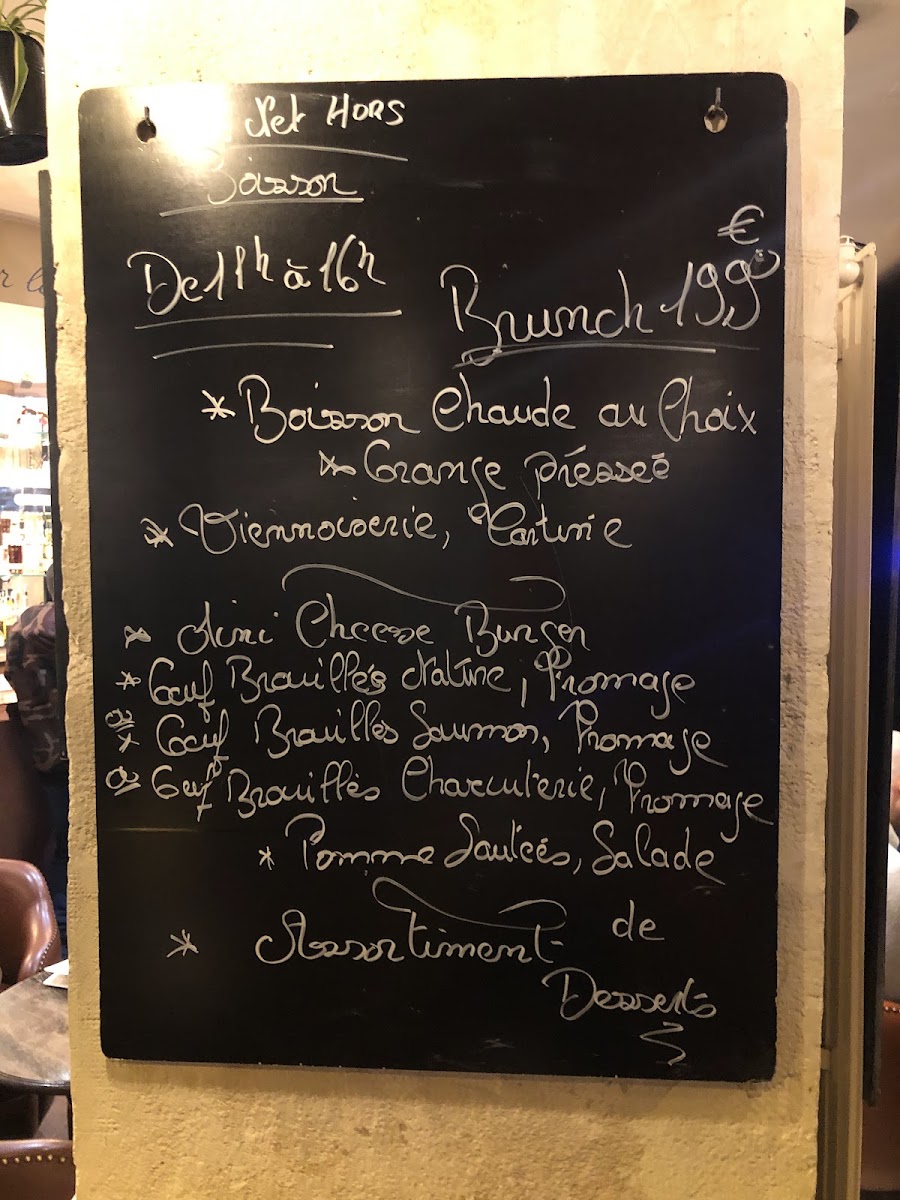 Net HORS
Boisson
De 11h à 16h
€
Brunch 19,90
* Boisson Chaude au Choix
* Orange présseé
* Viennoiserie, Tartine
* Mini Cheese Burger
* Oeuf Brouillés Nature, Fromage
ou * Oeuf Brouillés Saumon, Fromage
ou Oeuf Brouillés Charcuterie, Fromage
* Pomme Sautées, Salade
* Assortiment de
Desserts